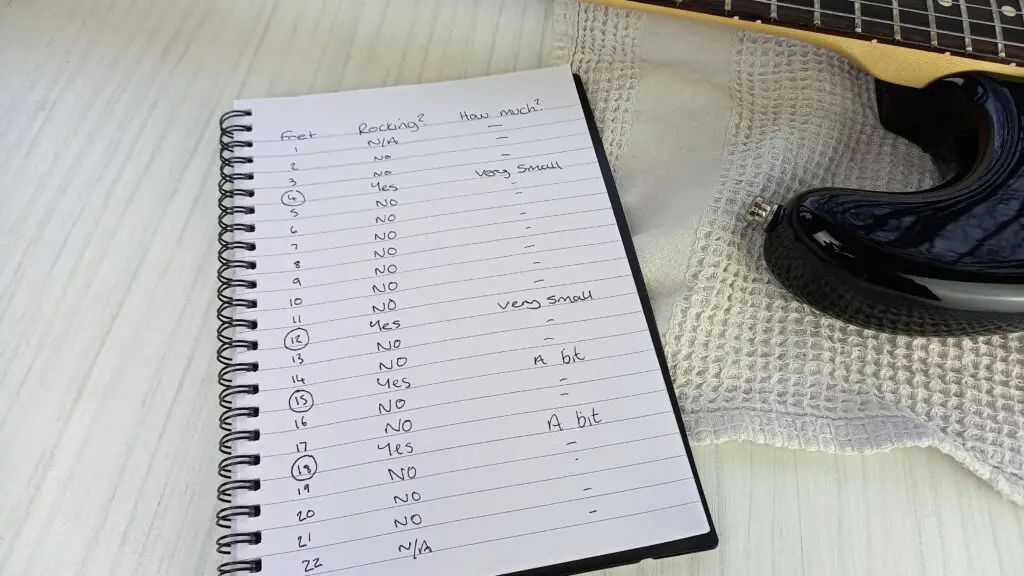 Fret Rocking? How much?
1 N/A –
2 NO –
3 NO –
4 Yes very small
5 NO -
6 NO -
7 NO -
8 NO -
9 NO -
10 NO -
11 NO
12 Yes very small
13 NO -
14 NO -
15 Yes A bit
16 NO -
17 NO -
18 Yes A bit
19 NO -
20 NO -
21 NO -
22 N/A -